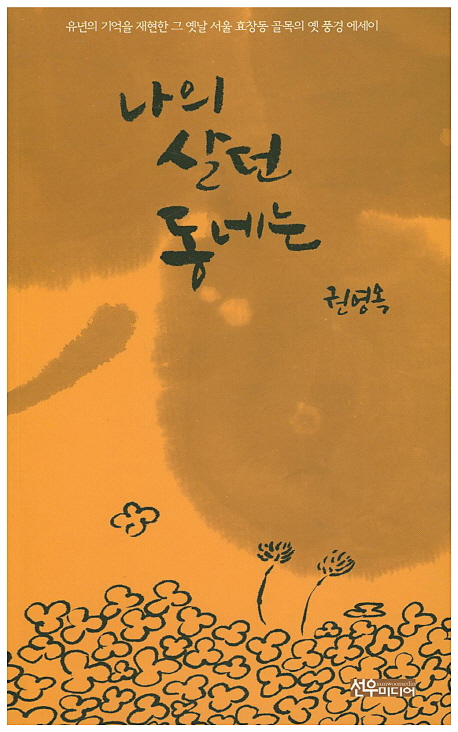 유년의 기억을 재현한 그 옛날 서울 효창동 골목의 옛 풍경 에세이
나의
살던
동네는
권영옥
sunwoomedia
선우미디어